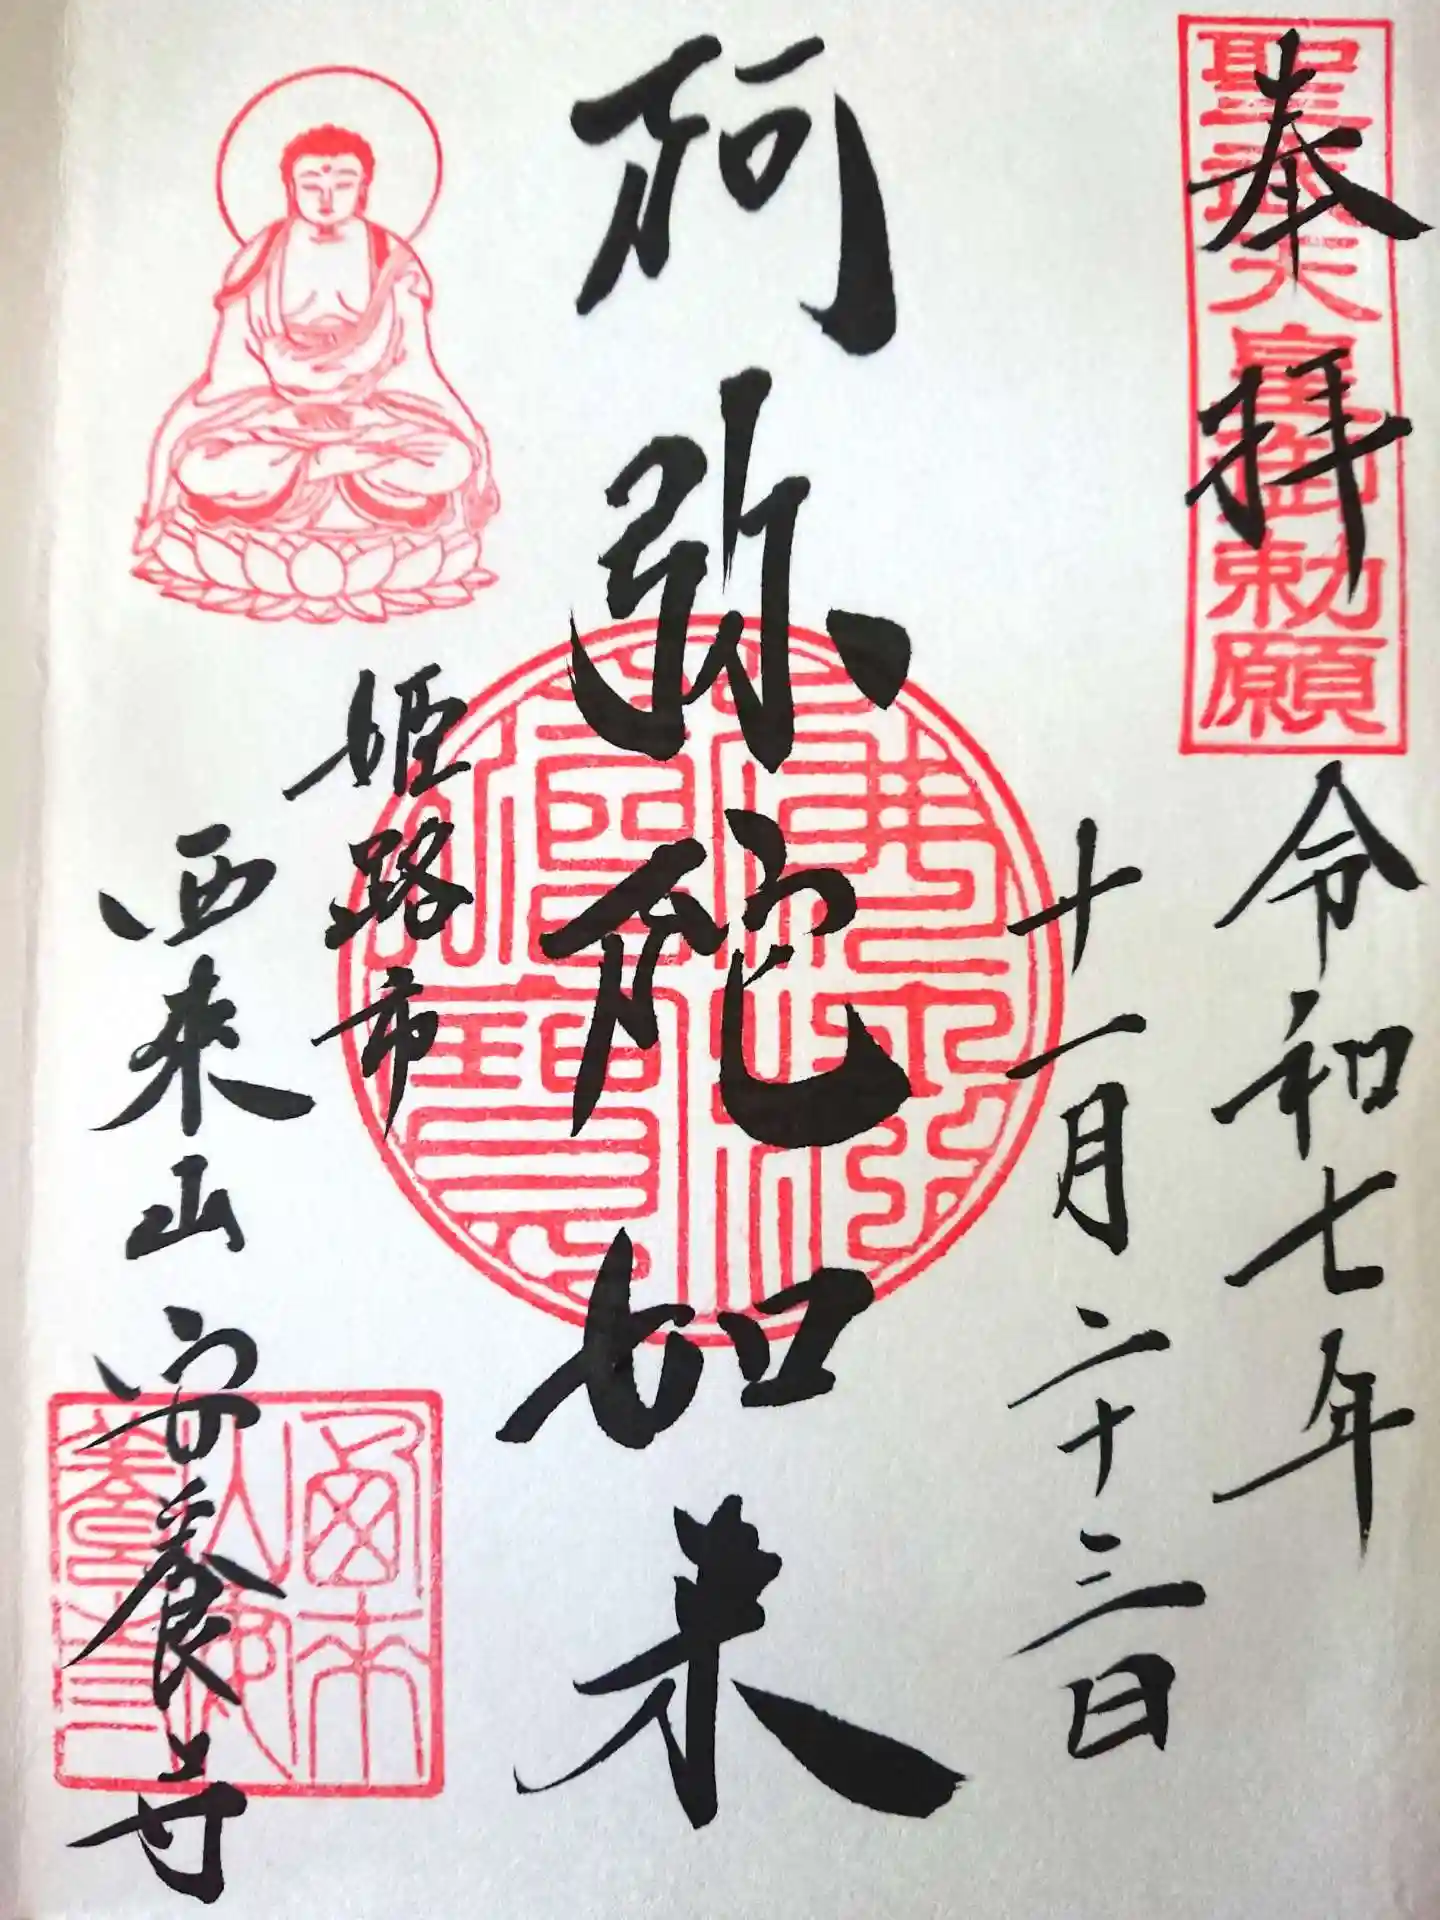 奉拝
聖武天皇御勅願
令和七年
十一月二十三日
阿弥陀如来
佛法僧寶
姫路市
西来山 安養寺